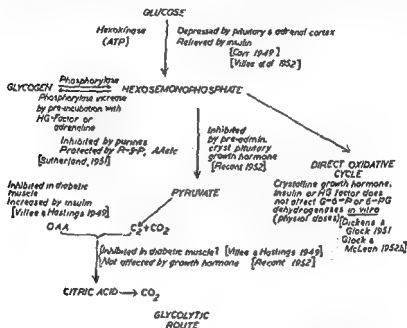 GLUCOSE
Hexokinase
(ATP)
Depressed by pituitary & adrenal cortex
Relieved by insulin
[Cori 1949]
[Villee et al 1952]
GLYCOGEN
Phosphorylase
HEXOSEMONOPHOSPHATE
Phosphorylase increase
by pre-incubation with
HG-Factor or
adrenaline
Inhibited by purines
Protected by R-5-P, AA etc
[Sutherland, 1951]
Inhibited
by pre-admin.
cryst pituitary
growth hormone
[Recant 1952]
DIRECT OXIDATIVE
CYCLE
Crystalline growth hormone,
Insulin or HG factor does
not affect G-6-P or 6-PG
dehydrogenases in vitro
(physiol doses)
[Dickens &
Glock 1951
Glock &
McLean 1952b]
Inhibited in diabetic
muscle
Increased by insulin
[Villee & Hastings 1949]
PYRUVATE
OAA
C2+CO2
Inhibited in diabetic muscle? [Villee & Hastings 1949]
Not affected by growth hormone [Recant 1952]
CITRIC ACID → CO2
GLYCOLYTIC
ROUTE